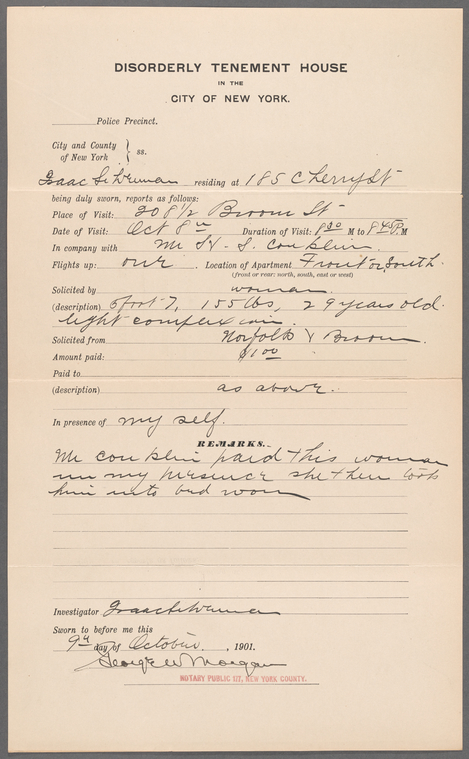 DISORDERLY TENEMENT HOUSE
IN THE
CITY OF NEW YORK.
Police Precinct.
City and County
of New York } ss.
Isaac Silverman residing at 185 Cherry St
being duly sworn, reports as follows:
Place of Visit: 208 1/2 Broom St
Date of Visit: Oct 8th Duration of Visit: 8 30 M to 8 45 P.M
In company with Mr H. S. Conklin
Flights up: one Location of Apartment Front or South.
(front or rear: north, south, east or west)
Solicited by woman
(description) 5 foot 7, 155 lbs, 29 years old.
light complexion.
Solicited from Norfolk & Broom
Amount paid: $1 00
Paid to
(description) as above.
In presence of my self.
REMARKS.
Mr Conklin paid this woman
in my presence she then took
him into bed room
Investigator Isaac Silverman
Sworn to before me this
9th day of October , 1901.
George W Morgan
NOTARY PUBLIC NEW YORK COUNTY.